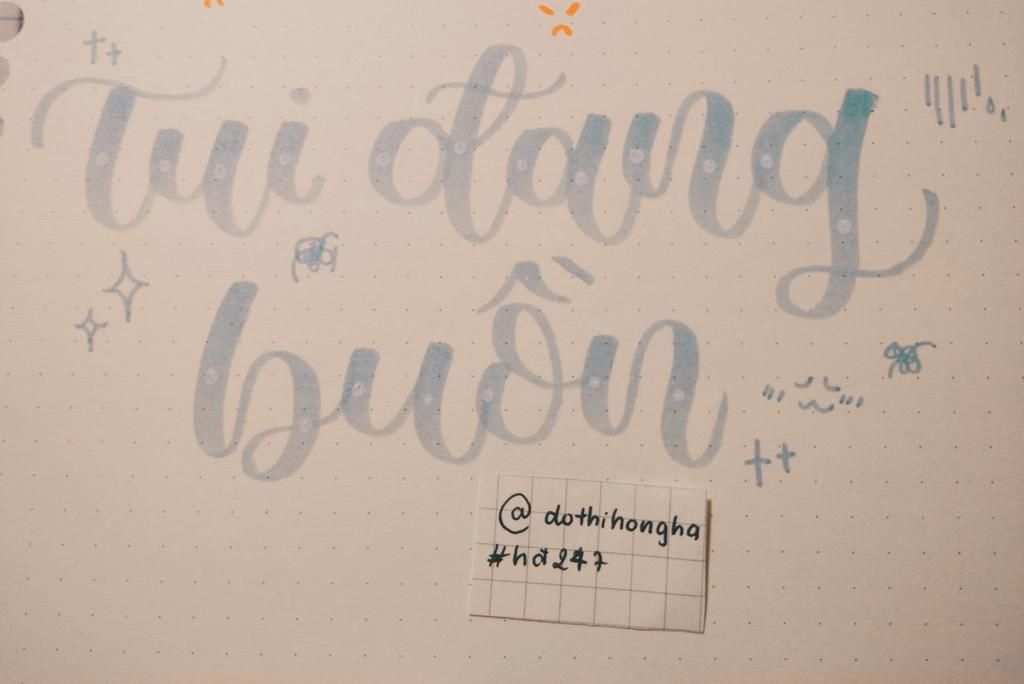 Tui đang
buồn
@dothihongha
#hd247